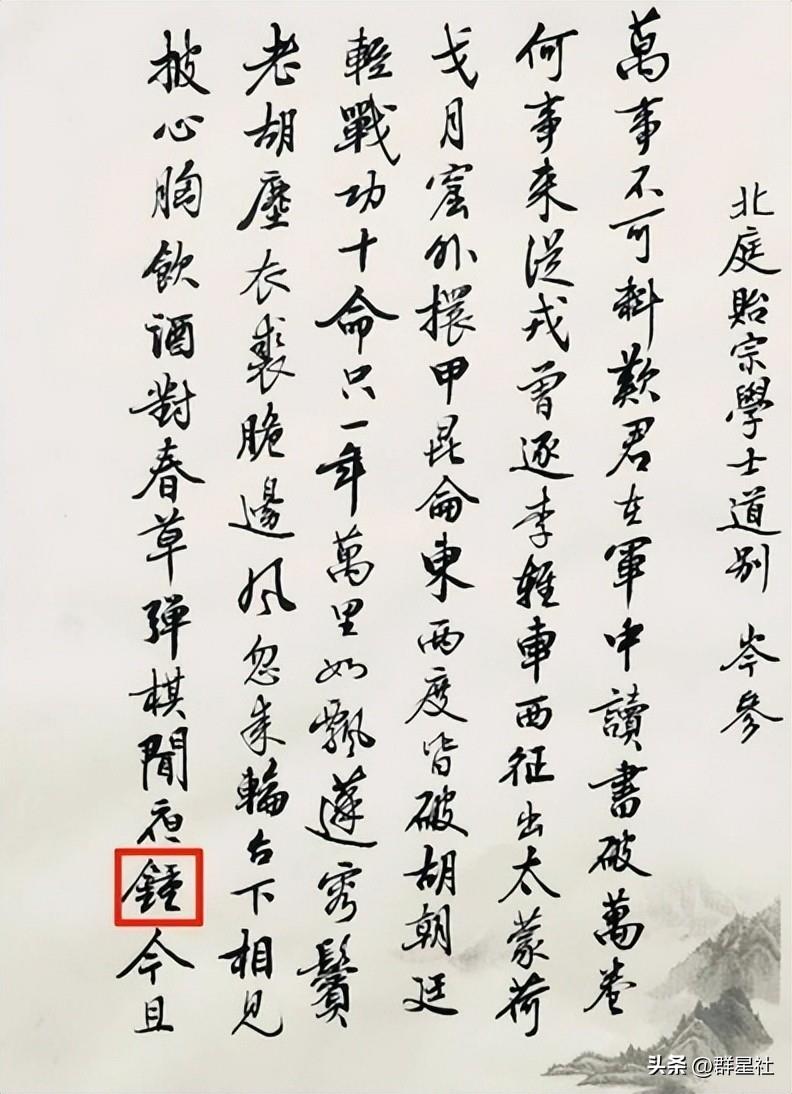 北庭貽宗學士道别 岑參
萬事不可料歎君在軍中讀書破萬卷
何事来從戎曾逐李輕車西征出太蒙荷
戈月窟外擐甲昆侖東两度皆破胡朝廷
輕戰功十命只一年萬里如飄蓬容鬢
老胡塵衣裘脆邊風忽来輪台下相見
披心胸飲酒對春草彈棋聞夜鍾今且
头条 @群星社